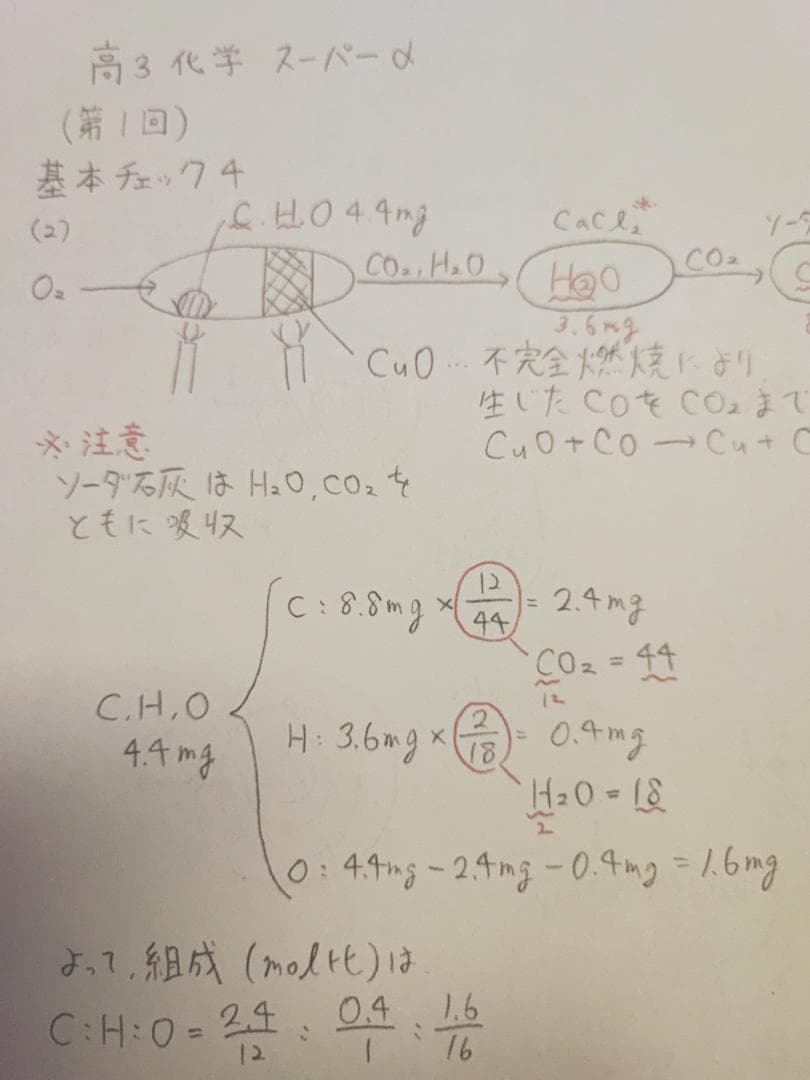 高3 化学 スーパーα
(第1回)
基本チェック4
(2)
C.H.O 4.4mg
O₂
CO₂, H₂O
CaCl₂※
H₂O
3.6mg
CO₂
ソーダ
CuO … 不完全燃焼により
生じたCOをCO₂まで
CuO + CO → Cu + C
※注意
ソーダ石灰は H₂O, CO₂を
ともに吸収
C.H.O
4.4mg
C : 8.8mg × 12/44 = 2.4mg
CO₂ = 44
12
H : 3.6mg × 2/18 = 0.4mg
H₂O = 18
2
O : 4.4mg − 2.4mg − 0.4mg = 1.6mg
よって, 組成 (mol比) は
C:H:O = 2.4/12 : 0.4/1 : 1.6/16